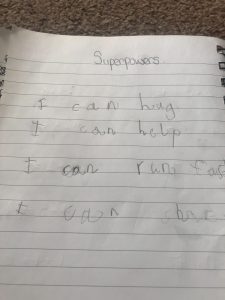 Superpowers
I can hug
I can help
I can run fas
I can shar